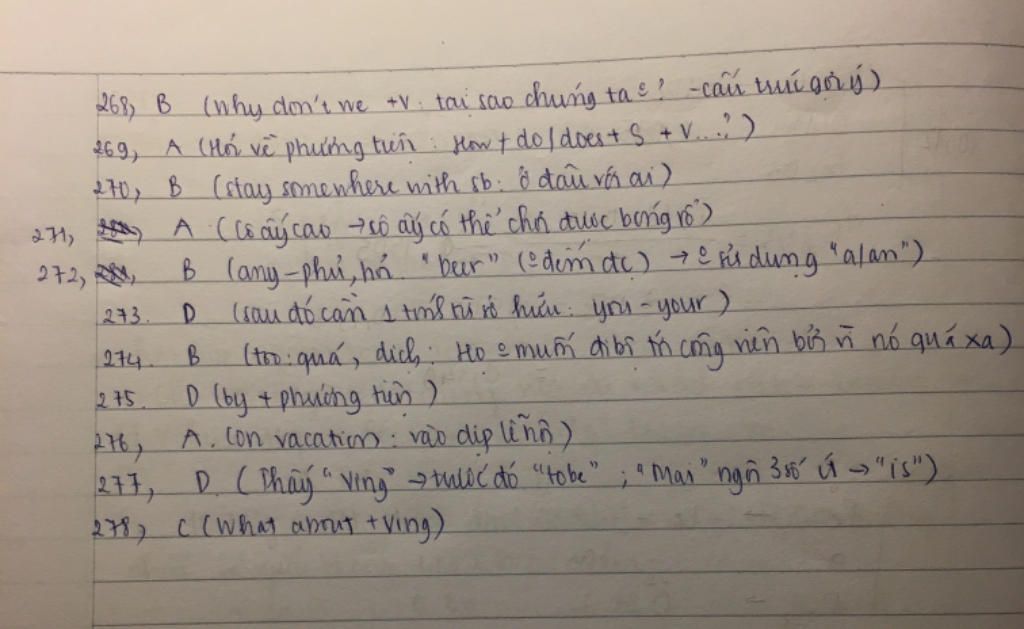 268, B (Why don't we + V: tại sao chúng ta o? - cấu trúc gợi ý)
269, A (Hỏi về phương tiện: How + do/does + S + V...?)
270, B (stay somewhere with sb: ở đâu với ai)
271, A (Cô ấy cao → cô ấy có thể chơi được bóng rổ)
272, B (any - phủ, hỏi. "beer" (o đếm đc) → o sử dụng "a/an")
273. D (sau đó cần 1 tính từ sở hữu: you - your)
274. B (too: quá, dịch: Họ o muốn đi bộ tới công viên bởi vì nó quá xa)
275. D (by + phương tiện)
276, A. (on vacation: vào dịp lễ)
277, D. (Thấy "Ving" → trước đó "tobe"; "Mai" ngôi 3 số ít → "is")
278, C (What about + Ving)